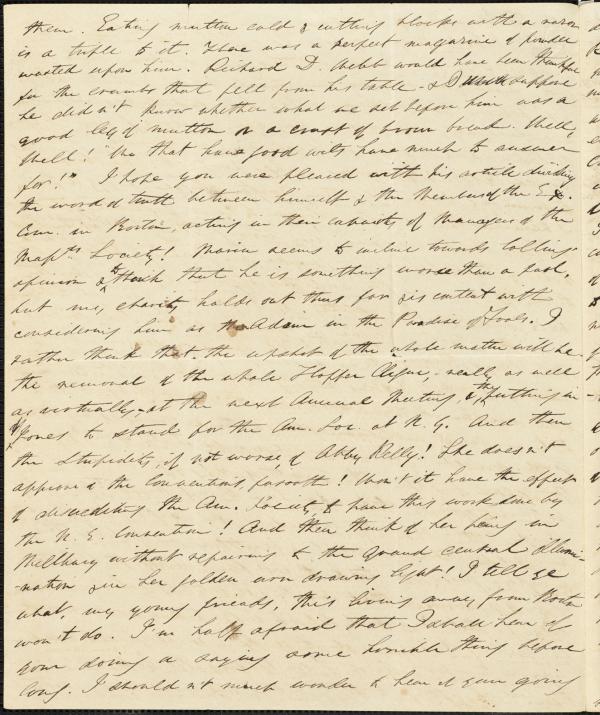 them. Eating mutton cold & cutting blocks with a razor
is a trifle to it. There was a perfect magazine of powder
wasted upon him. Richard D. Webb would have been thankful
for the crumbs that fell from his table - & I suppose
he didn't know whether what we set before him was a
good leg of mutton or a crust of brown bread. Well,
Well! "We that have good wits have much to answer
for!" I hope you were pleased with his article dividing
the word of truth between himself & the Members of the Ex.
Com. in Boston, acting in their capacity of Managers of the
Massts Society! Maria seems to incline towards
opinion & to think that he is something worse than a fool,
but my charity holds out thus far & is content with
considering him as the Adam in the Paradise of Fools. I
rather think that the upshot of the whole matter will be
the removal of the whole Hopper Clique, really as well
as virtually, at the next Annual Meeting, & the putting in
of Jones to stand for the Am. Soc. at N. Y. And then
the stupidity, if not worse, of Abby Kelly! She doesn't
approve of the Conventions, forsooth! Won't it have the effect
of discrediting the Am. Society, to have this work done by
the N. E. Convention! And then think of her being in
Millbury without repairing to the grand central illumi-
-nation & in her golden urn drawing light! I tell ye
what, my young friends, this living away from Boston
won't do. I'm half afraid that I shall hear of
your doing or saying some horrible thing before
long. I should n't much wonder to hear of your going